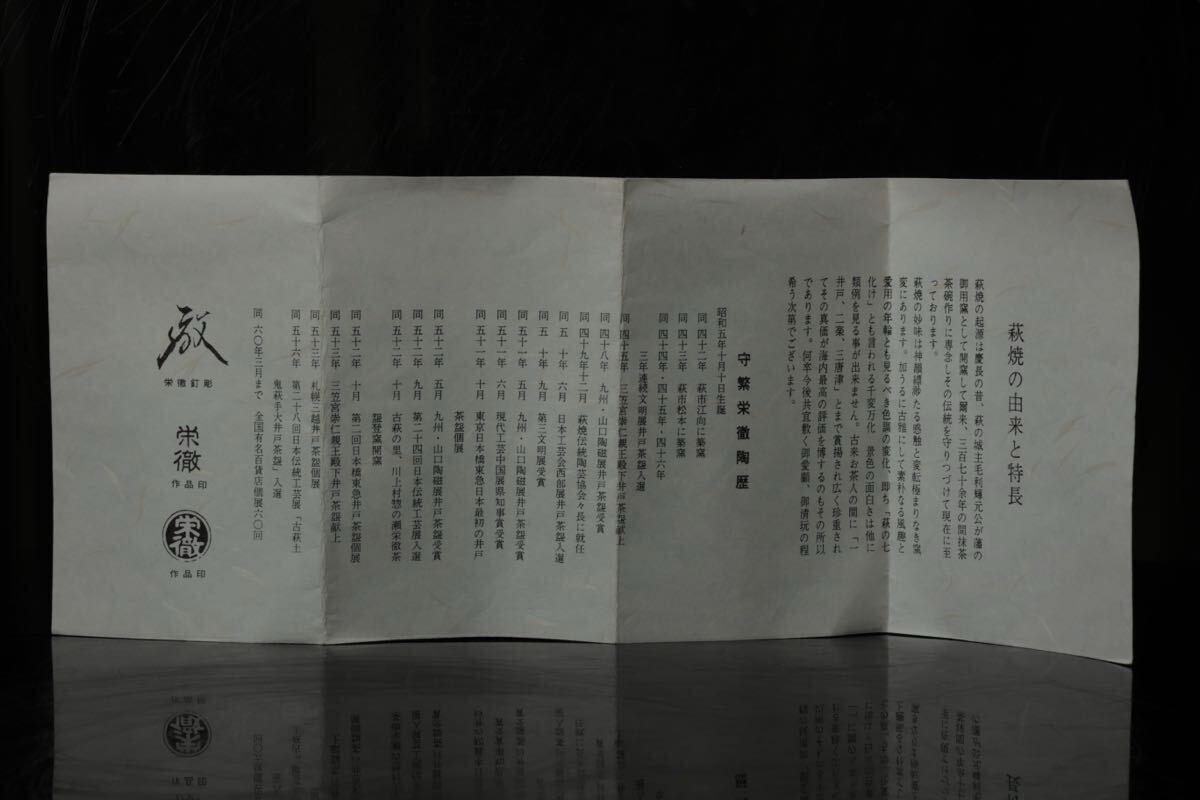 萩焼の由来と特長
萩焼の起源は慶長の昔、萩の城主毛利輝元公が藩の
御用窯として開窯して爾来、三百七十余年の間抹茶
茶碗作りに専念しその伝統を守りつづけて現在に至
っております。
萩焼の妙味は神韻縹渺たる感触と変転極まりなき窯
変にあります。加うるに古雅にして素朴なる風趣と
愛用の年輪とも見るべき色調の変化、即ち「萩の七
化け」とも言われる千変万化 景色の面白さは他に
類例を見る事が出来ません。古来お茶人の間に「一
井戸、二楽、三唐津」とまで賞揚され広く珍重され
てその真価が海内最高の評価を博するのもその所以
であります。何卒今後共宜敷く御愛顧、御清玩の程
希う次第でございます。
守繁栄徹陶歴
昭和五年十月十日生誕
同 四十二年 萩市江向に築窯
同 四十三年 萩市松本に築窯
同 四十四年・四十五年・四十六年
三年連続文明展井戸茶盌入選
同 四十五年 三笠宮崇仁親王殿下井戸茶盌献上
同 四十八年 九州・山口陶磁展井戸茶盌受賞
同 四十九年十二月 萩焼伝統陶芸協会々長に就任
同 五十年 六月 日本工芸会西部展井戸茶盌入選
同 五十年 九月 第三文明展受賞
同 五十一年 五月 九州・山口陶磁展井戸茶盌受賞
同 五十一年 六月 現代工芸中国展県知事賞受賞
同 五十一年 十月 東京日本橋東急日本最初の井戸
茶盌個展
同 五十二年 五月 九州・山口陶磁展井戸茶盌受賞
同 五十二年 九月 第二十四回日本伝統工芸展入選
同 五十二年 十月 古萩の里、川上村惣の瀬栄徹茶
盌登窯開窯
同 五十二年 十月 第二回日本橋東急井戸茶盌個展
同 五十三年 三笠宮崇仁親王殿下井戸茶盌献上
同 五十三年 札幌三越井戸茶盌個展
同 五十六年 第二十八回日本伝統工芸展「古萩土
鬼萩手大井戸茶盌」入選
同 六〇年三月まで 全国有名百貨店個展六〇回
栄徹釘彫
栄徹
作品印
栄徹
作品印